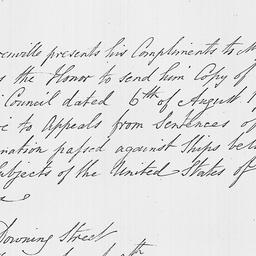 enville presents his Compliments to M
s the Honor to send him Copy of
Council dated 6th of August 1
to Appeals from Sentences of
nation passed against Ships bel
ubjects of the United States of
Downing Street